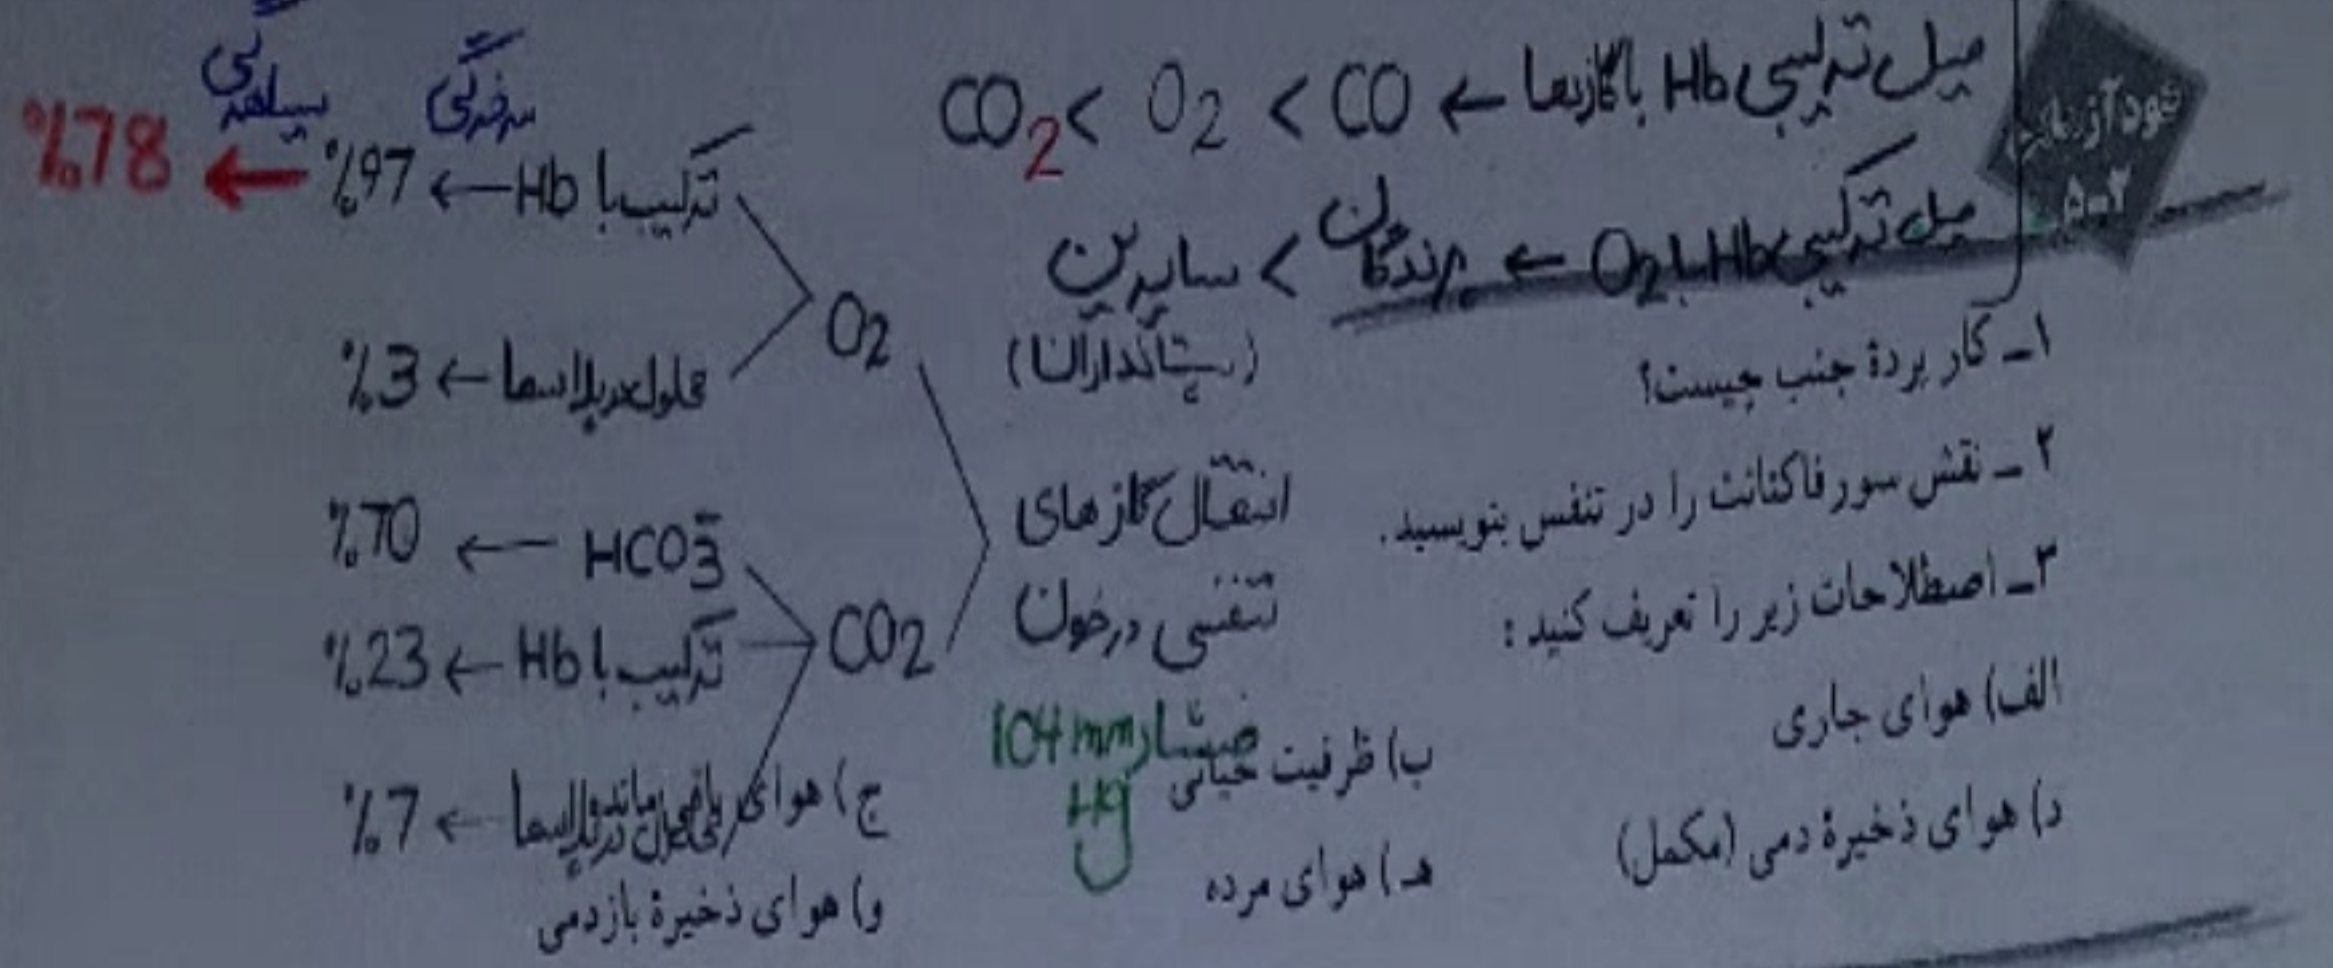 خودآزمایی
۵-۲
میل ترکیبی Hb با گازها ← CO > O2 > CO2
میل ترکیبی Hb با O2 ← پرندگان > سایرین
(پستانداران)
۱ـ کار پردهٔ جنب چیست؟
۲ـ نقش سورفاکتانت را در تنفس بنویسید.
۳ـ اصطلاحات زیر را تعریف کنید :
الف) هوای جاری
ب) ظرفیت حیاتی
ج) هوای باقی‌مانده
د) هوای ذخیرهٔ دمی (مکمل)
هـ) هوای مرده
و) هوای ذخیرهٔ بازدمی
انتقال گازهای
تنفسی در خون
O2
ترکیب با Hb ← %97 ← %78
سرخرگی
سیاهرگی
محلول در پلاسما ← %3
CO2
HCO3- ← %70
ترکیب با Hb ← %23
محلول در پلاسما ← %7
فشار 104 mm
Hg